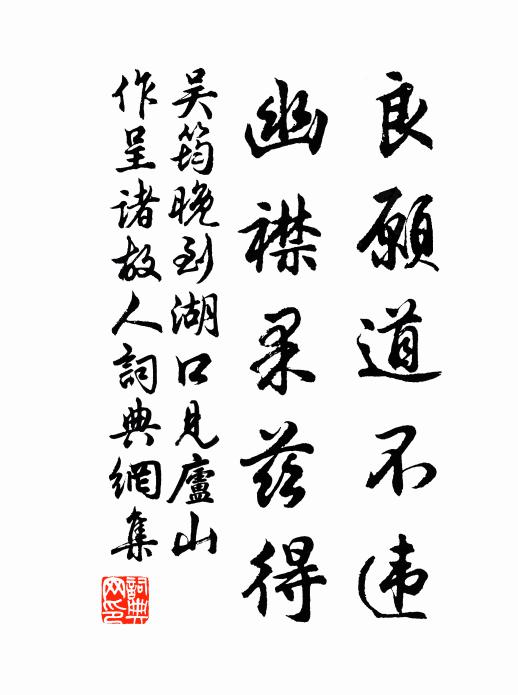 良願道不违
幽襟果茲得
吴筠晚到湖口見廬山
作呈諸故人詞典網集
詞典网印